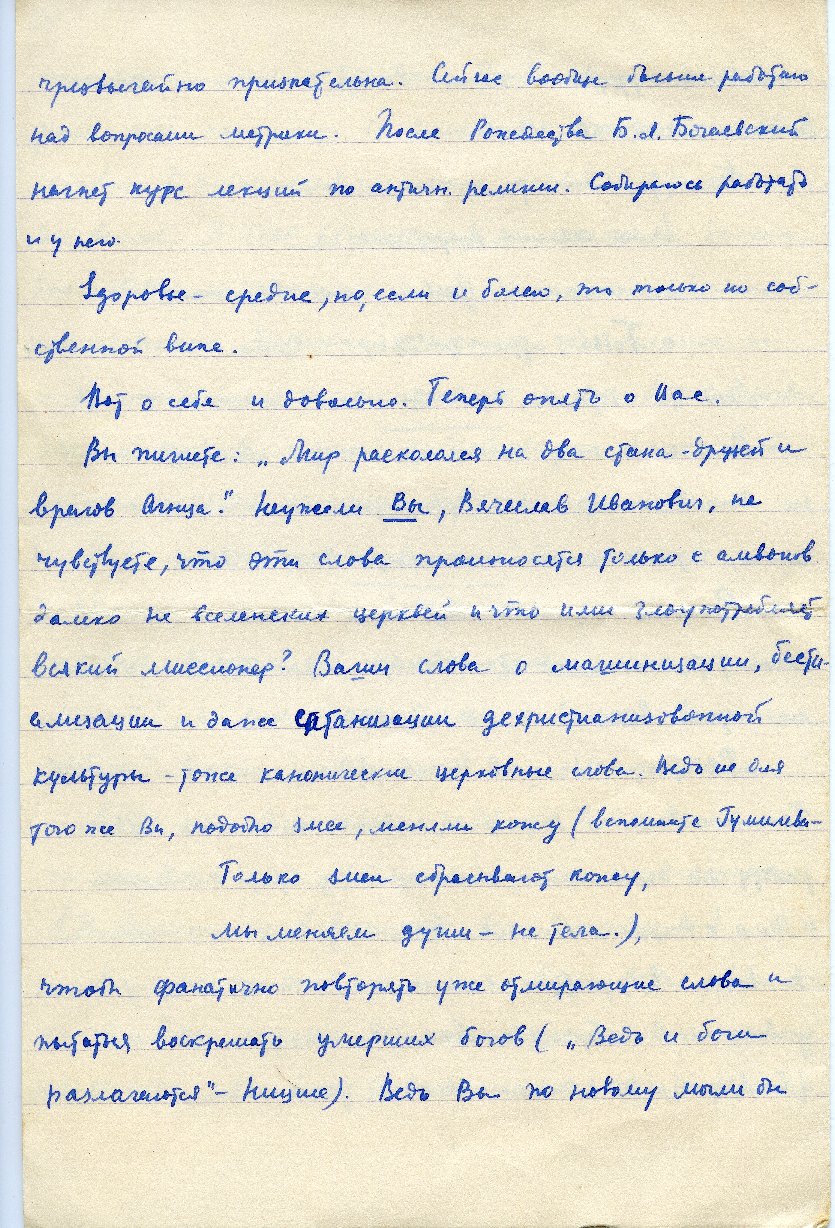 чрезвычайно признательна. Сейчас вообще больше работаю
над вопросами метрики. После Рождества Б.Л. Богаевский
начнет курс лекций по античн. религии. Собираюсь работать
и у него.
Здоровье – средне, но, если и болею, то только по соб-
ственной вине.
Вот о себе и довольно. Теперь опять о Вас.
Вы пишете: „Мир раскололся на два стана – друзей и
врагов Агнца." Неужели Вы, Вячеслав Иванович, не
чувствуете, что эти слова произносятся только с амвонов
далеко не вселенских церквей и что ими злоупотребляет
всякий миссионер? Ваши слова о машинизации, бести-
ализации и даже сатанизации дехристианизованной
культуры – тоже канонические церковные слова. Ведь не для
того же Вы, подобно змее, меняли кожу (вспомните Гумилева –
Только змеи сбрасывают кожу,
мы меняем души – не тела.),
чтобы фанатично повторять уже отмирающие слова и
пытаться воскрешать умерших богов („Ведь и боги
разлагаются" – Ницше). Ведь Вы по новому могли бы